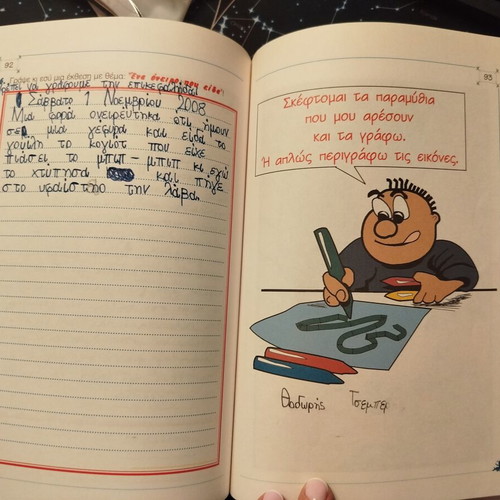 92
Γράψε κι εσύ μια έκθεση με θέμα: "Ένα όνειρο που είδα"
πρέπει να γράψουμε την επικεφαλήδα!
Σάββατο 1 Νοεμβρίου 2008
Μια φορά ονειρεύτηκα ότι ήμουν
σε μια γέφυρα και είδα το
που είχε
πιάσει το μπιπ-μπιπ κι εγώ
το χτύπησα και πήγε
στο υφαίστιο την λάβα.
93
Σκέφτομαι τα παραμύθια
που μου αρέσουν
και τα γράφω.
Ή απλώς περιγράφω τις εικόνες.
Θοδωρής Τσεμπερ